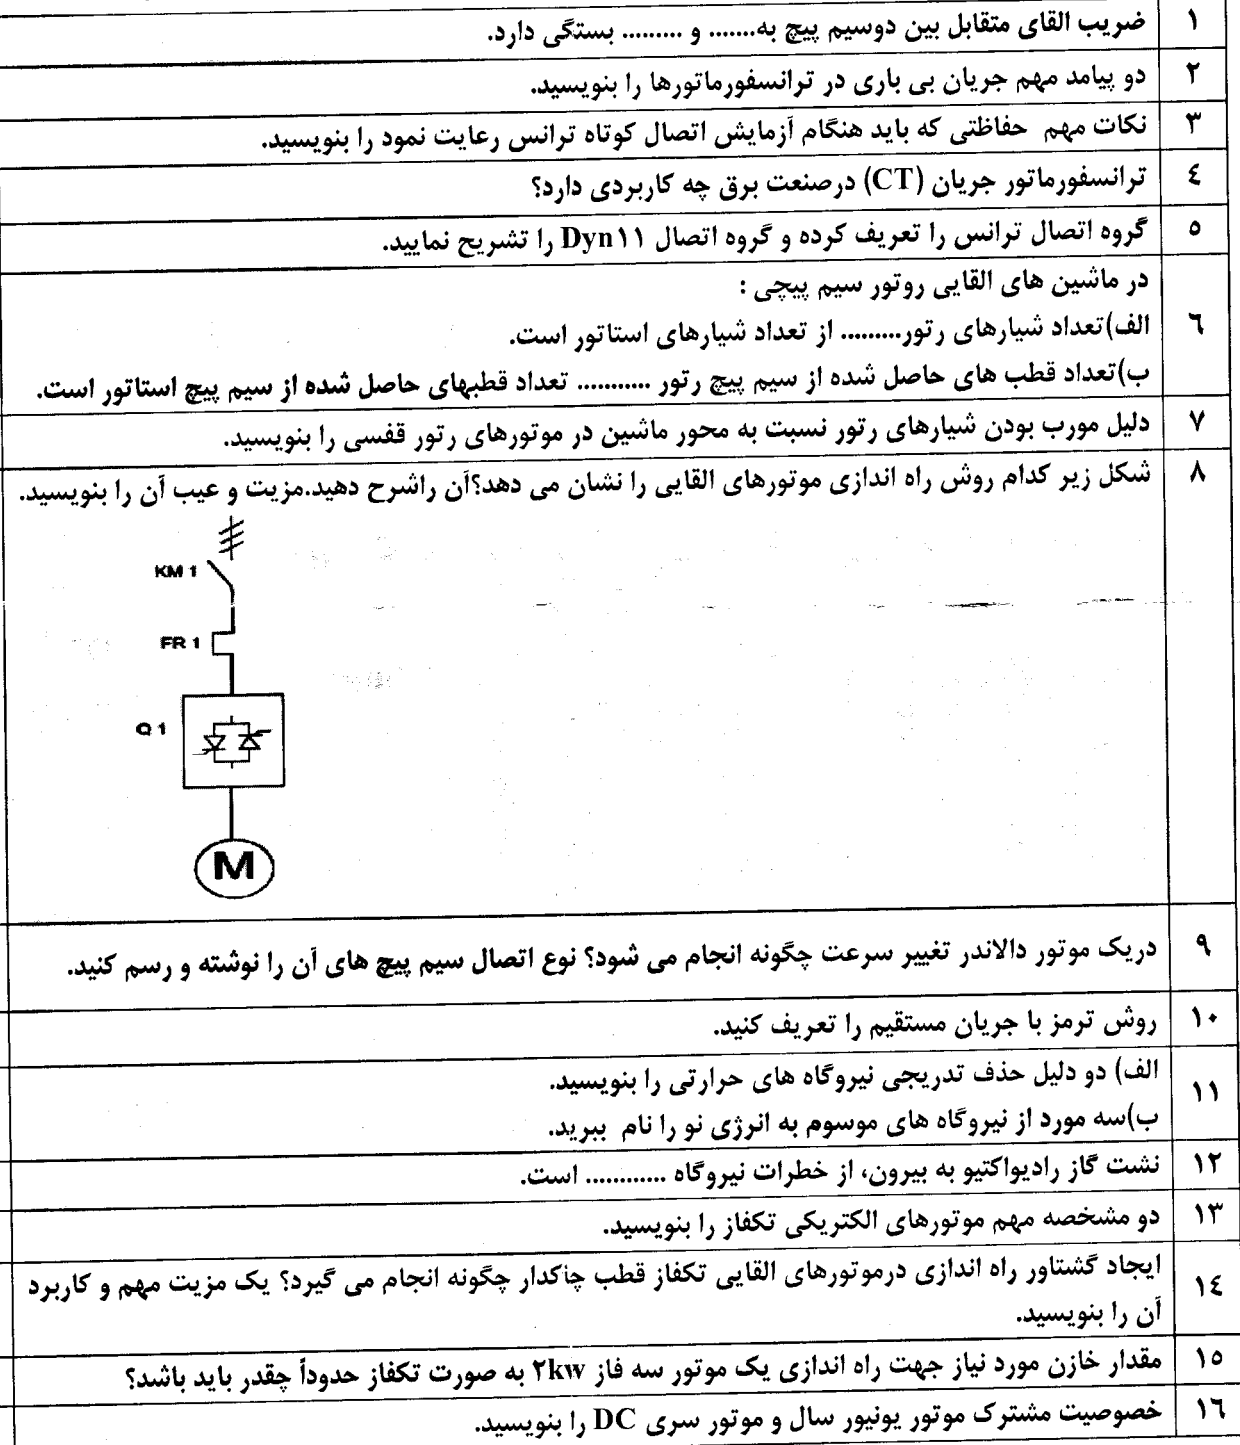 ۱ ضریب القای متقابل بین دوسیم پیچ به....... و ......... بستگی دارد.
۲ دو پیامد مهم جریان بی باری در ترانسفورماتورها را بنویسید.
۳ نکات مهم حفاظتی که باید هنگام آزمایش اتصال کوتاه ترانس رعایت نمود را بنویسید.
٤ ترانسفورماتور جریان (CT) درصنعت برق چه کاربردی دارد؟
٥ گروه اتصال ترانس را تعریف کرده و گروه اتصال Dyn۱۱ را تشریح نمایید.
در ماشین های القایی روتور سیم پیچی :
٦ الف)تعداد شیارهای رتور......... از تعداد شیارهای استاتور است.
ب)تعداد قطب های حاصل شده از سیم پیچ رتور ........... تعداد قطبهای حاصل شده از سیم پیچ استاتور است.
۷ دلیل مورب بودن شیارهای رتور نسبت به محور ماشین در موتورهای رتور قفسی را بنویسید.
۸ شکل زیر کدام روش راه اندازی موتورهای القایی را نشان می دهد؟آن راشرح دهید.مزیت و عیب آن را بنویسید.
KM 1
FR 1
Q 1
M
۹ دریک موتور دالاندر تغییر سرعت چگونه انجام می شود؟ نوع اتصال سیم پیچ های آن را نوشته و رسم کنید.
۱۰ روش ترمز با جریان مستقیم را تعریف کنید.
۱۱ الف) دو دلیل حذف تدریجی نیروگاه های حرارتی را بنویسید.
ب)سه مورد از نیروگاه های موسوم به انرژی نو را نام ببرید.
۱۲ نشت گاز رادیواکتیو به بیرون، از خطرات نیروگاه ............ است.
۱۳ دو مشخصه مهم موتورهای الکتریکی تکفاز را بنویسید.
۱٤ ایجاد گشتاور راه اندازی درموتورهای القایی تکفاز قطب چاکدار چگونه انجام می گیرد؟ یک مزیت مهم و کاربرد
آن را بنویسید.
۱٥ مقدار خازن مورد نیاز جهت راه اندازی یک موتور سه فاز ۲kw به صورت تکفاز حدوداً چقدر باید باشد؟
۱٦ خصوصیت مشترک موتور یونیور سال و موتور سری DC را بنویسید.